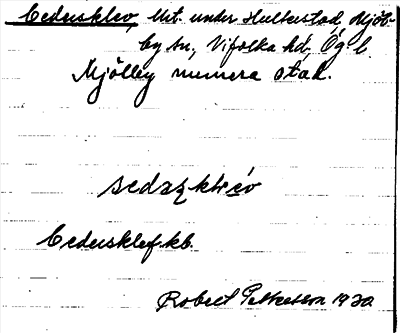 Cedersklev, Utt. under Hulterstad, Mjöl-
by sn, Vifolka hd, Ög l.
Mjölby numera stad.
Cedersklef kb.
Robert Pettersson 1920